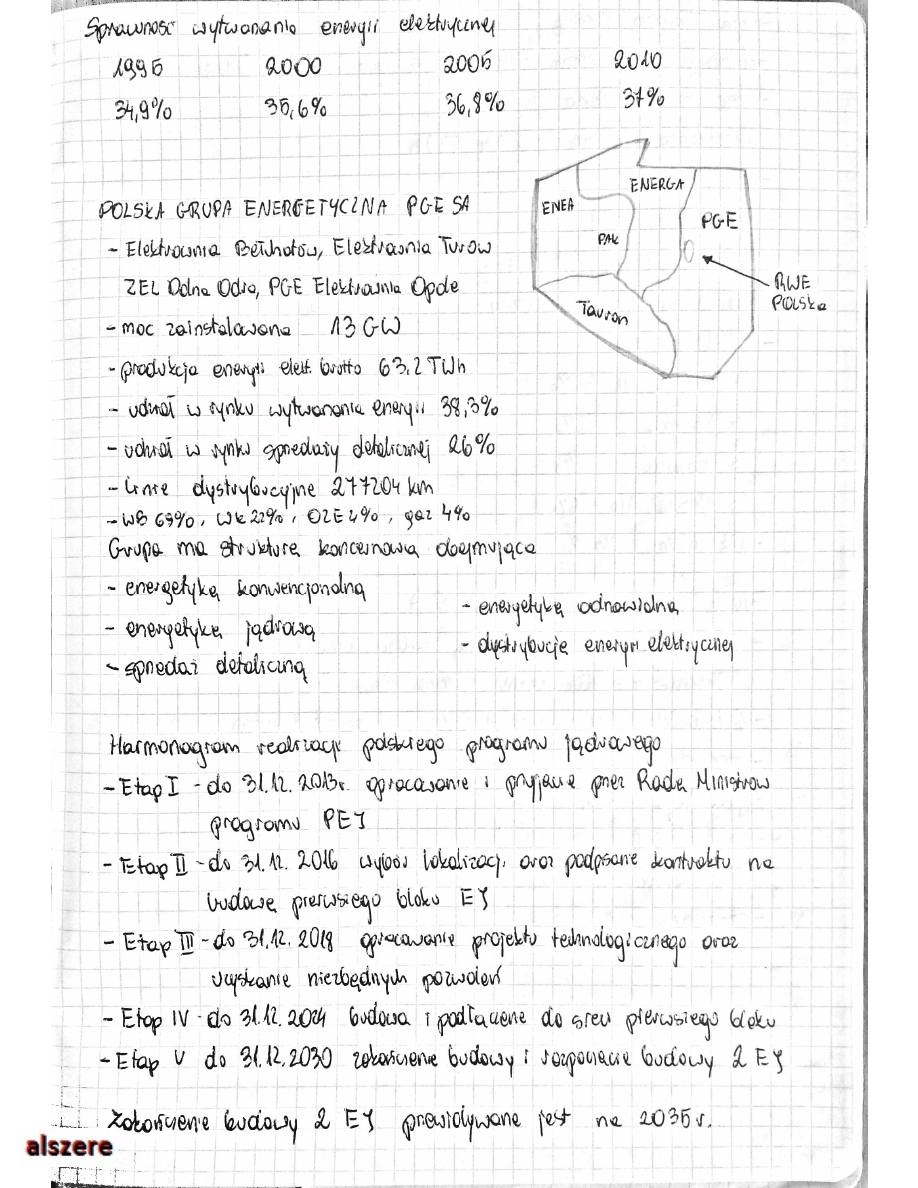 Sprawność wytwarzania energii elektrycznej
1995 2000 2005 2010
34,9% 35,6% 36,8% 37%
POLSKA GRUPA ENERGETYCZNA PGE SA
- Elektrownia Bełchatów, Elektrownia Turów
ZEL Dolna Odra, PGE Elektrownia Opole
- moc zainstalowana 13 GW
- produkcja energii elekt. brutto 63,2 TWh
- udział w rynku wytwarzania energii 38,3%
- udział w rynku sprzedaży detalicznej 26%
- Linie dystrybucyjne 277204 km
- WB 69%, WK 22%, OZE 4%, gaz 4%
ENEA
ENERGA
PAK
PGE
Tauron
RWE
POLSKA
Grupa ma strukturę koncernową obejmującą
- energetykę konwencjonalną
- energetykę jądrową
- sprzedaż detaliczną
- energetykę odnawialną
- dystrybucję energii elektrycznej
Harmonogram realizacji polskiego programu jądrowego
- Etap I - do 31.12.2013r. opracowanie i przyjęcie przez Radę Ministrów
programu PEJ
- Etap II - do 31.12.2016 wybór lokalizacji oraz podpisanie kontraktu na
budowę pierwszego bloku EJ
- Etap III - do 31.12.2018 opracowanie projektu technologicznego oraz
uzyskanie niezbędnych pozwoleń
- Etap IV - do 31.12.2024 budowa i podłączenie do sieci pierwszego bloku
- Etap V do 31.12.2030 zakończenie budowy i rozpoczęcie budowy 2 EJ
Zakończenie budowy 2 EJ przewidywane jest na 2035 r.
alszere